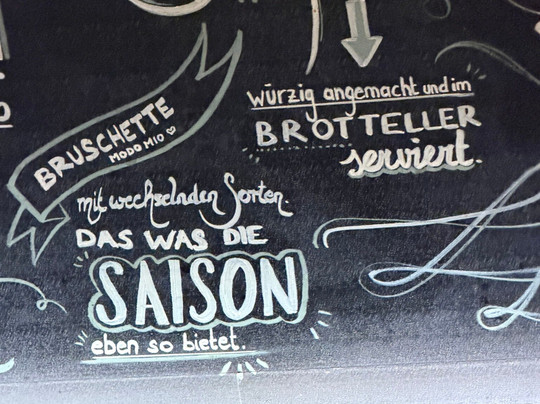 BRUSCHETTE
MODO MIO
mit wechselnden Sorten.
DAS WAS DIE
SAISON
eben so bietet.
würzig angemacht und im
BROTTELLER
serviert.